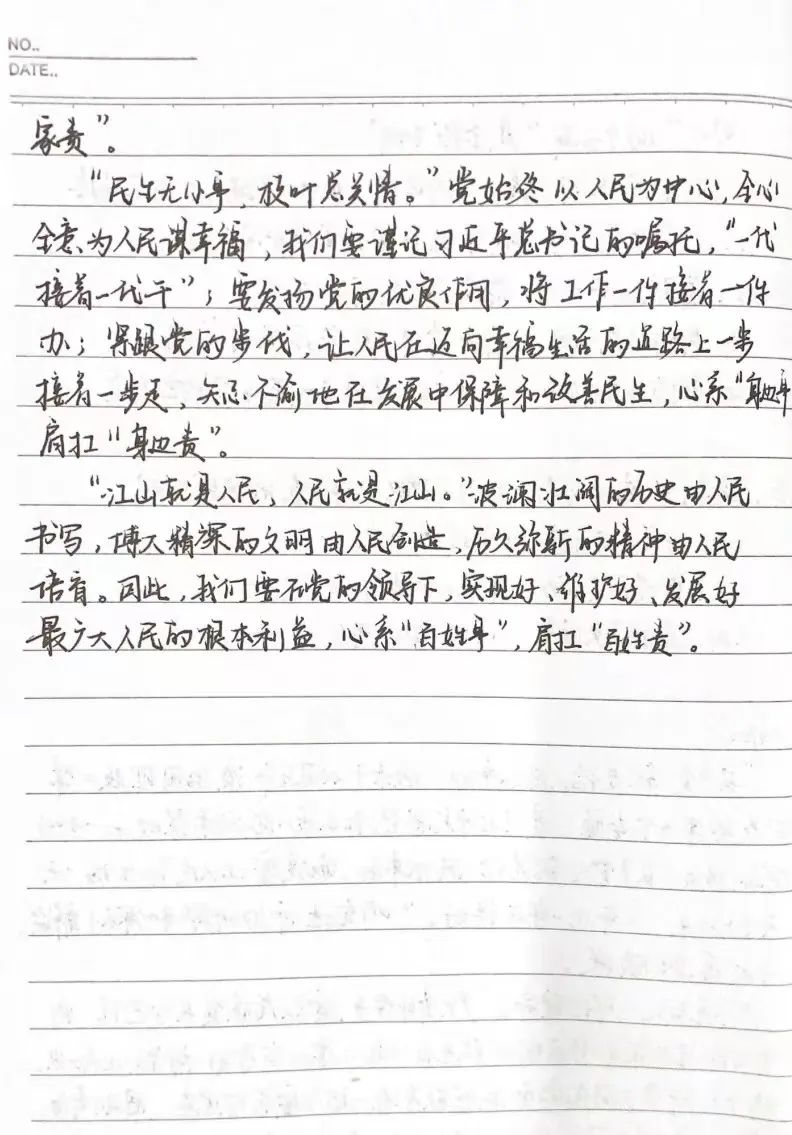 NO..
DATE..
家责”。
“民生无小事，枝叶总关情。”党始终以人民为中心，全心
全意为人民谋幸福，我们要谨记习近平总书记的嘱托，“一代
接着一代干”；要发扬党的优良作风，将工作一件接着一件
办；紧跟党的步伐，让人民在迈向幸福生活的道路上一步
接着一步走，矢志不渝地在发展中保障和改善民生，心系“身边事”
肩扛“身边责”。
“江山就是人民，人民就是江山。”波澜壮阔的历史由人民
书写，博大精深的文明由人民创造，历久弥新的精神由人民
培育。因此，我们要在党的领导下，实现好、维护好、发展好
最广大人民的根本利益，心系“百姓事”，肩扛“百姓责”。